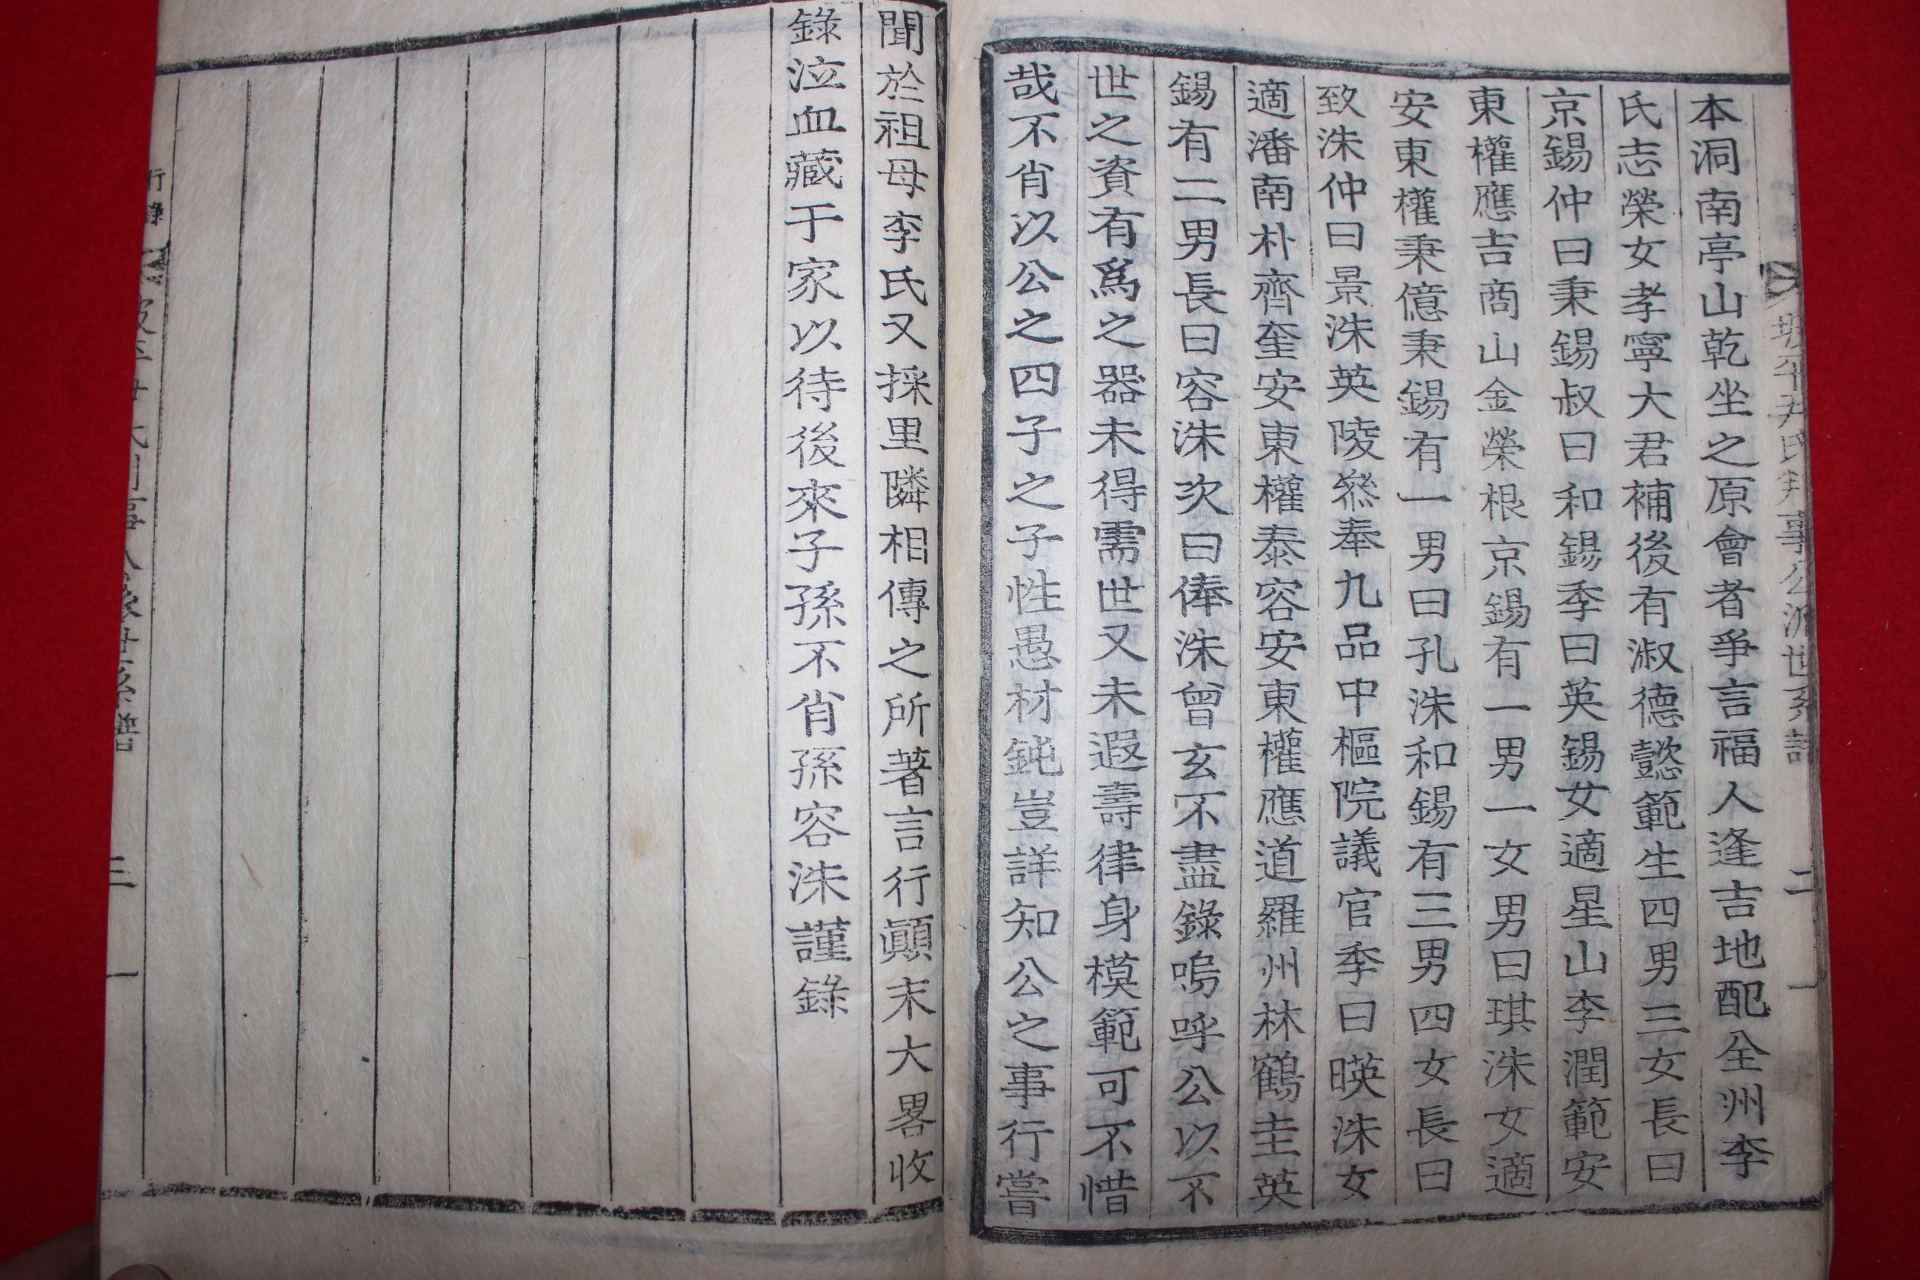 本洞南亭山乾坐之原會者爭言福人逢吉地配全州李
氏志榮女孝寧大君補後有淑德懿範生四男三女長曰
京錫仲曰秉錫叔曰和錫季曰英錫女適星山李潤範安
東權應吉商山金榮根京錫有一男一女男曰琪洙女適
安東權秉億秉錫有一男曰孔洙和錫有三男四女長曰
致洙仲曰景洙英陵叅奉九品中樞院議官季曰暎洙女
適潘南朴齊奎安東權泰容安東權應道羅州林鶴圭英
錫有二男長曰容洙次曰俸洙曾玄不盡錄嗚呼公以不
世之資有爲之器未得需世又未遐壽律身模範可不惜
哉不肖以公之四子之子性愚材鈍豈詳知公之事行嘗
聞於祖母李氏又採里隣相傳之所著言行顚末大畧收
錄泣血藏于家以待後來子孫不肖孫容洙謹錄
坡平尹氏判事公派世系譜 二
行錄
三